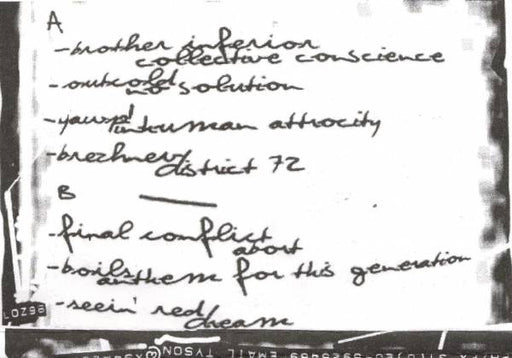 A
-brother inferior
collective conscience
-outcold
no solution
-yawp!
inhuman attrocity
-brezhnev/
district 72
B
-final conflict
abort
-boils
anthem for this generation
-seein' red/
dream
LOZ98
TYSON
EMAIL